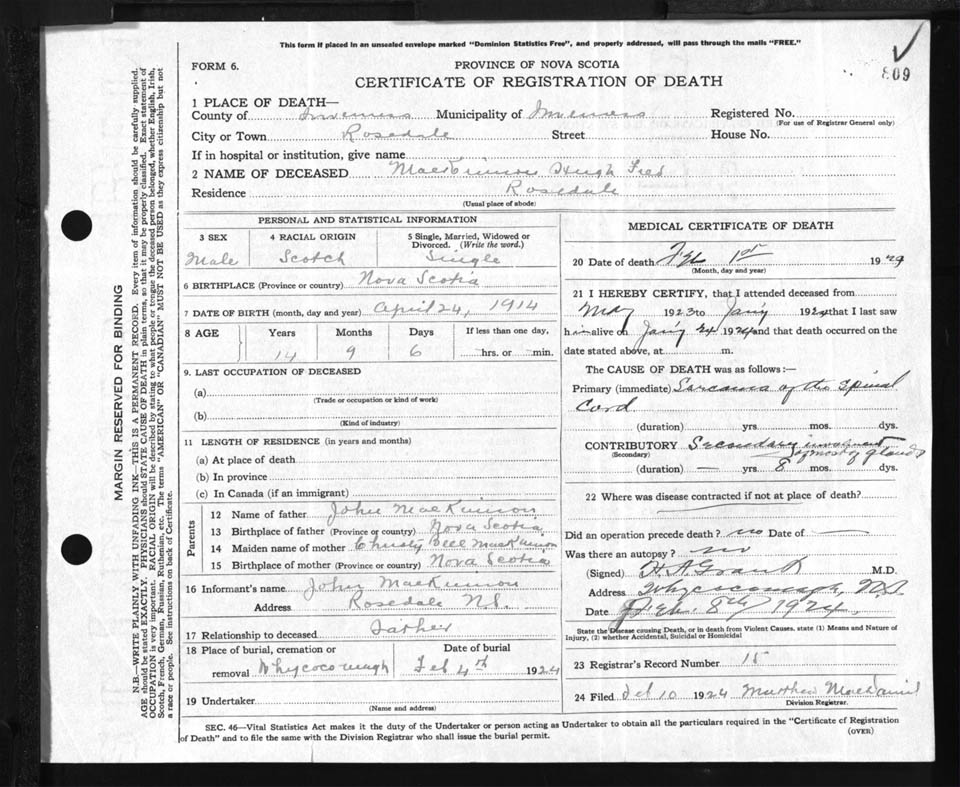 This form if placed in an unsealed envelope marked "Dominion Statistics Free", and properly addressed, will pass through the mails "FREE."
609
FORM 6.
PROVINCE OF NOVA SCOTIA
CERTIFICATE OF REGISTRATION OF DEATH
1 PLACE OF DEATH—
County of Inverness Municipality of Inverness Registered No.
(For use of Registrar General only)
City or Town Rosedale Street House No.
If in hospital or institution, give name
2 NAME OF DECEASED MacKinnon Hugh Fred
Residence Rosedale
(Usual place of abode)
PERSONAL AND STATISTICAL INFORMATION
3 SEX 4 RACIAL ORIGIN 5 Single, Married, Widowed or Divorced. (Write the word.)
Male Scotch Single
6 BIRTHPLACE (Province or country) Nova Scotia
7 DATE OF BIRTH (month, day and year) April 24, 1914
8 AGE Years Months Days If less than one day,
14 9 6 hrs. or min.
9. LAST OCCUPATION OF DECEASED
(a)
(Trade or occupation or kind of work)
(b)
(Kind of industry)
11 LENGTH OF RESIDENCE (in years and months)
(a) At place of death
(b) In province
(c) In Canada (if an immigrant)
Parents
12 Name of father John MacKinnon
13 Birthplace of father (Province or country) Nova Scotia
14 Maiden name of mother Christy Bell MacKinnon
15 Birthplace of mother (Province or country) Nova Scotia
16 Informant's name John MacKinnon
Address Rosedale N.S.
17 Relationship to deceased Father
18 Place of burial, cremation or Date of burial
removal Whycocomagh Feb 4th 1924
19 Undertaker
(Name and address)
MEDICAL CERTIFICATE OF DEATH
20 Date of death Feb 1st 19
(Month, day and year)
21 I HEREBY CERTIFY, that I attended deceased from
May 1923 to Jan'y 1924 that I last saw
h im alive on Jan'y 24 1924 and that death occurred on the
date stated above, at m.
The CAUSE OF DEATH was as follows:—
Primary (immediate) Sarcoma of the Spinal
Cord
(duration) yrs. mos. dys.
CONTRIBUTORY Secondary involment
(Secondary) of glands
(duration) — yrs. 8 mos. dys.
22 Where was disease contracted if not at place of death?
Did an operation precede death? no Date of —
Was there an autopsy? no
(Signed) H. A. Grant M.D.
Address Whycocomagh, N.S.
Date Feb. 8th, 1924.
State the Disease causing Death, or in death from Violent Causes, state (1) Means and Nature of
Injury, (2) whether Accidental, Suicidal or Homicidal
23 Registrar's Record Number 15
24 Filed Feb 10 1924 Matthew MacDaniel
Division Registrar.
SEC. 46—Vital Statistics Act makes it the duty of the Undertaker or person acting as Undertaker to obtain all the particulars required in the "Certificate of Registration
of Death" and to file the same with the Division Registrar who shall issue the burial permit.
(OVER)
MARGIN RESERVED FOR BINDING
N.B.—WRITE PLAINLY WITH UNFADING INK—THIS IS A PERMANENT RECORD. Every item of information should be carefully supplied.
AGE should be stated EXACTLY. PHYSICIANS should STATE CAUSE OF DEATH in plain terms, so that it may be properly classified. Exact statement of
OCCUPATION is very important. RACIAL ORIGIN will be described by stating to what people or tongue the deceased person belonged, whether English, Irish,
Scotch, French, German, Russian, Ruthenian, etc. The terms "AMERICAN" OR "CANADIAN" MUST NOT BE USED as they express citizenship but not
a race or people. See instructions on back of Certificate.